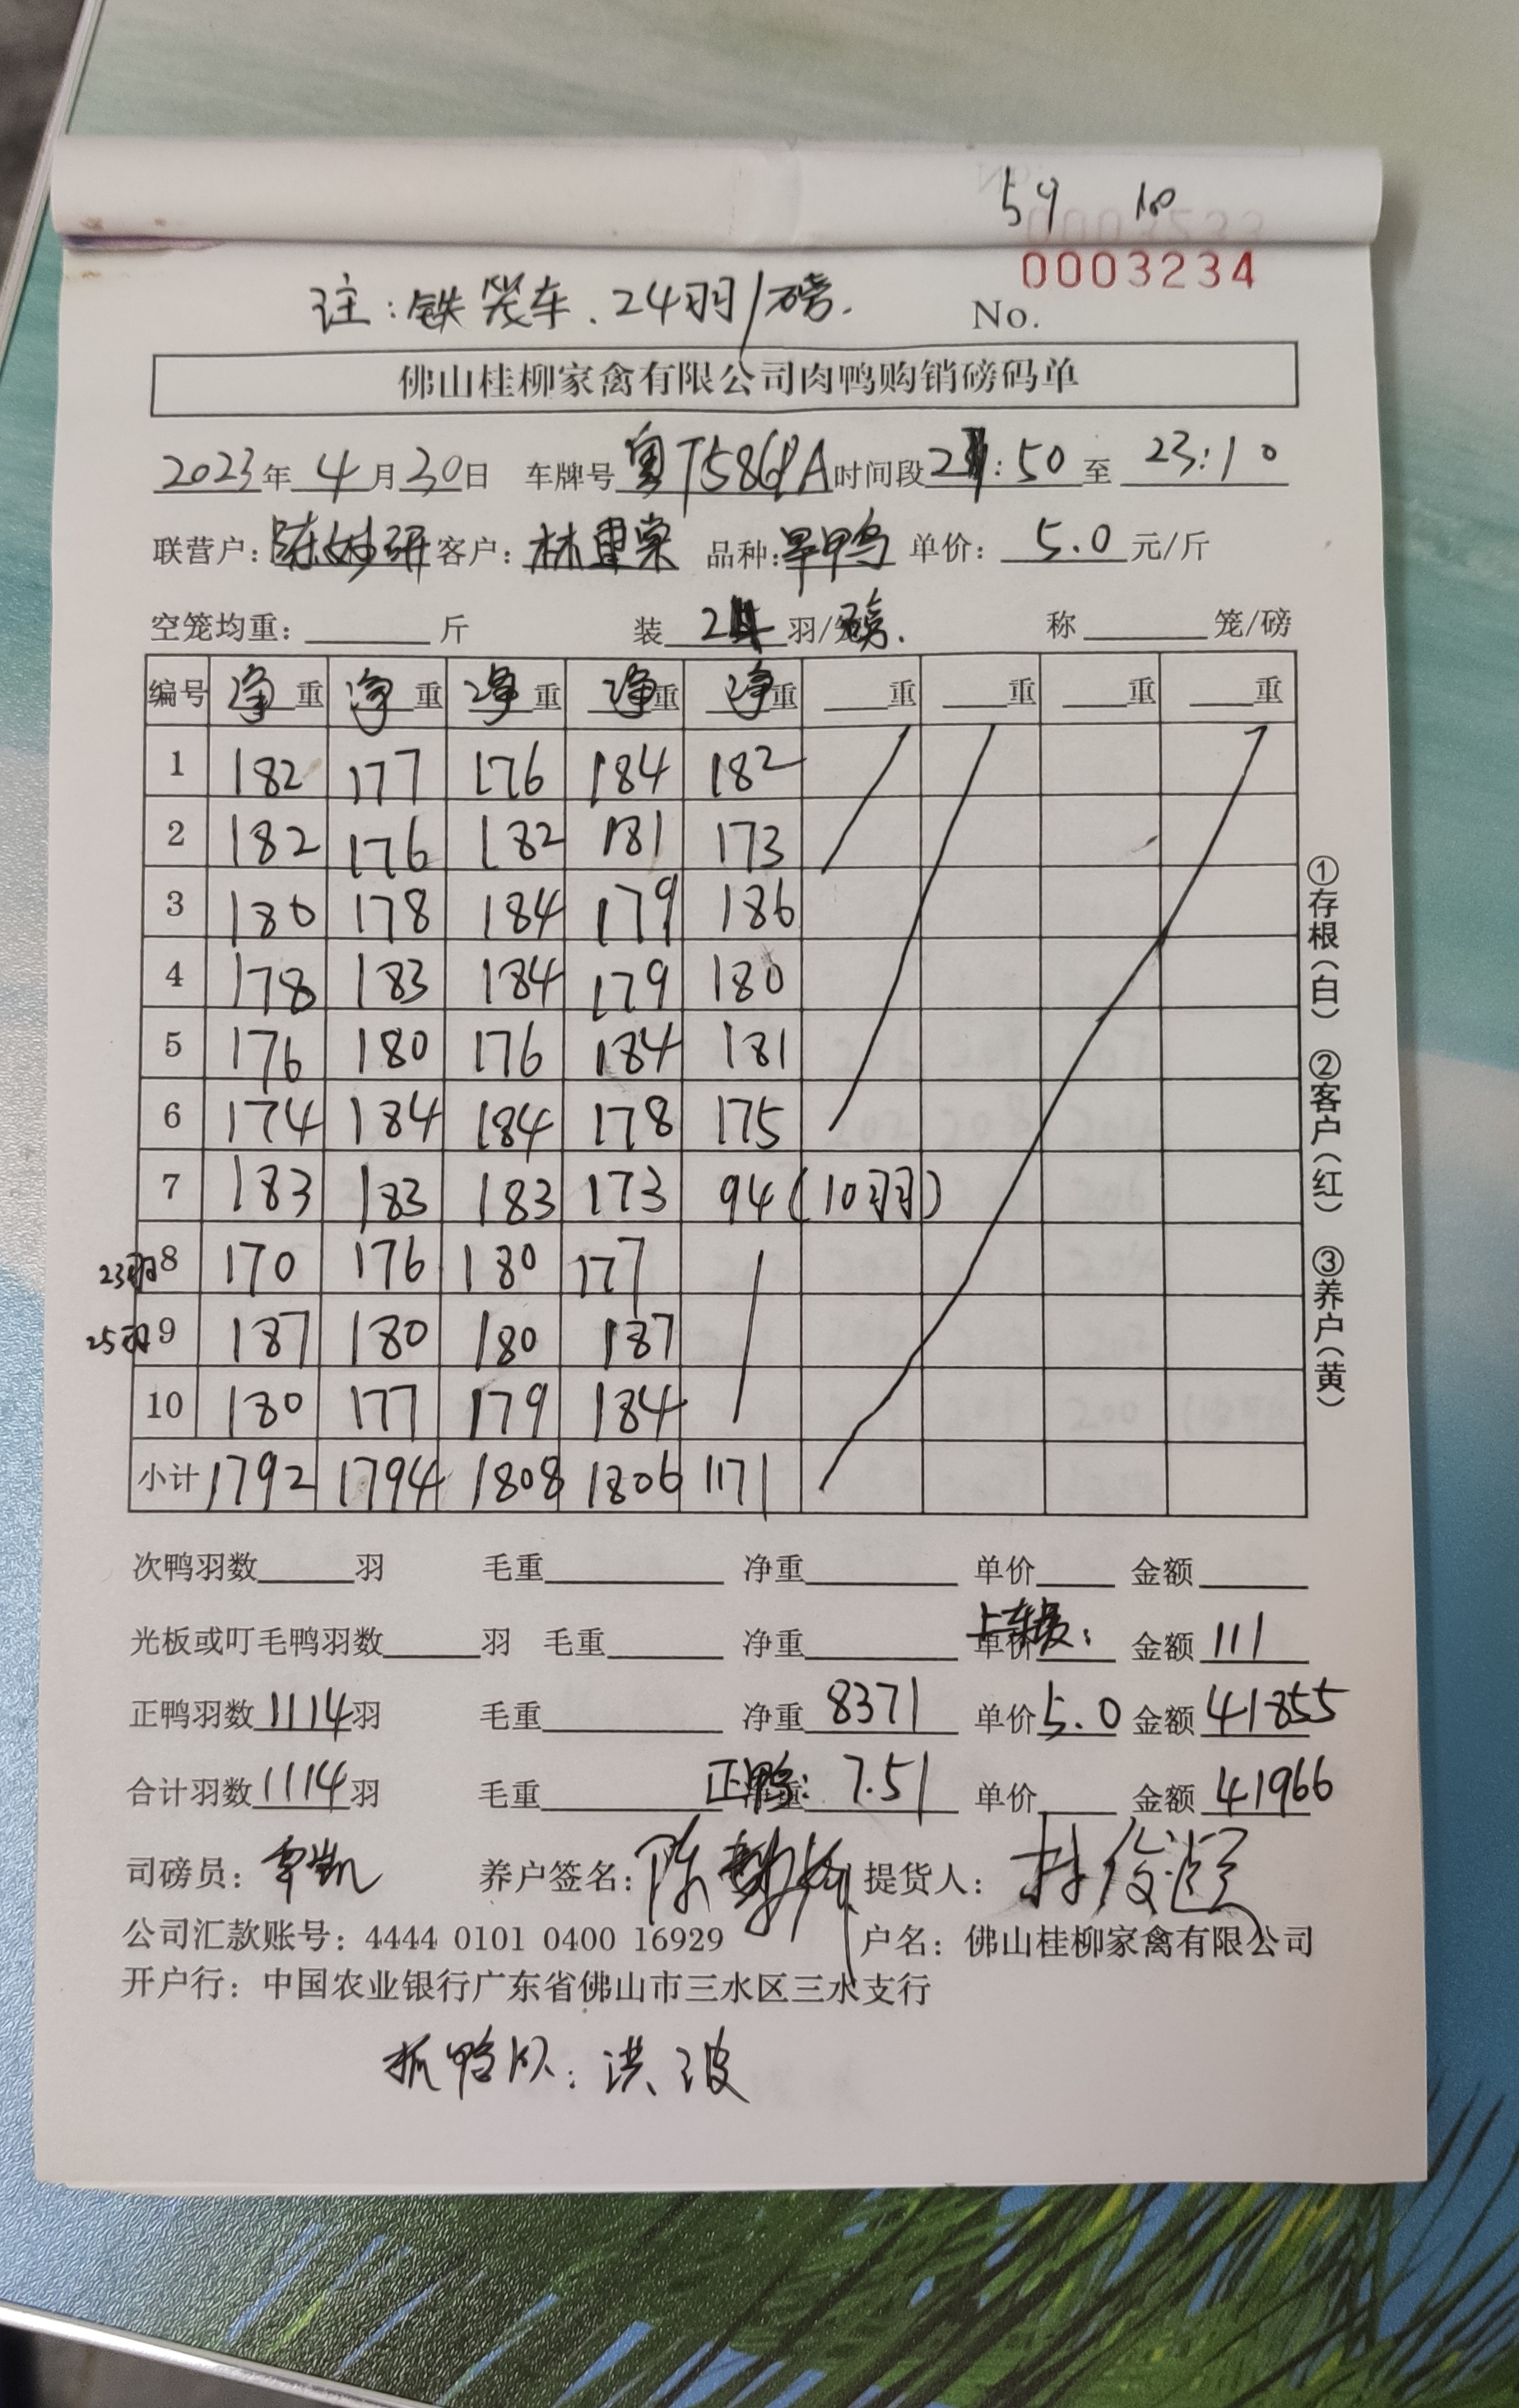 59 100
0003234
注:铁笼车.24羽/磅.
No.
佛山桂柳家禽有限公司肉鸭购销磅码单
2023年4月30日 车牌号粤T5868A时间段21:50至23:10
联营户:陈妙研 客户:林里棠 品种:旱鸭 单价:5.0元/斤
空笼均重:______斤 装24羽/磅. 称______笼/磅
编号 净重 净重 净重 净重 净重 重 重 重 重
1 182 177 176 184 182
2 182 176 182 181 173
3 180 178 184 179 186
4 178 183 184 179 180
5 176 180 176 184 181
6 174 184 184 178 175
7 183 183 183 173 94(10羽)
23羽 8 170 176 180 177
25羽 9 187 180 180 187
10 180 177 179 184
小计 1792 1794 1808 1806 1171
①存根(白) ②客户(红) ③养户(黄)
次鸭羽数____羽 毛重____ 净重____ 单价____ 金额____
光板或叮毛鸭羽数____羽 毛重____ 净重____ 上车费: 金额111
正鸭羽数1114羽 毛重____ 净重8371 单价5.0 金额41855
合计羽数1114羽 毛重____ 正鸭:7.51 单价____ 金额41966
司磅员: 养户签名:陈 提货人:林俊超
公司汇款账号:4444 0101 0400 16929 户名:佛山桂柳家禽有限公司
开户行:中国农业银行广东省佛山市三水区三水支行
抓鸭队:洪波